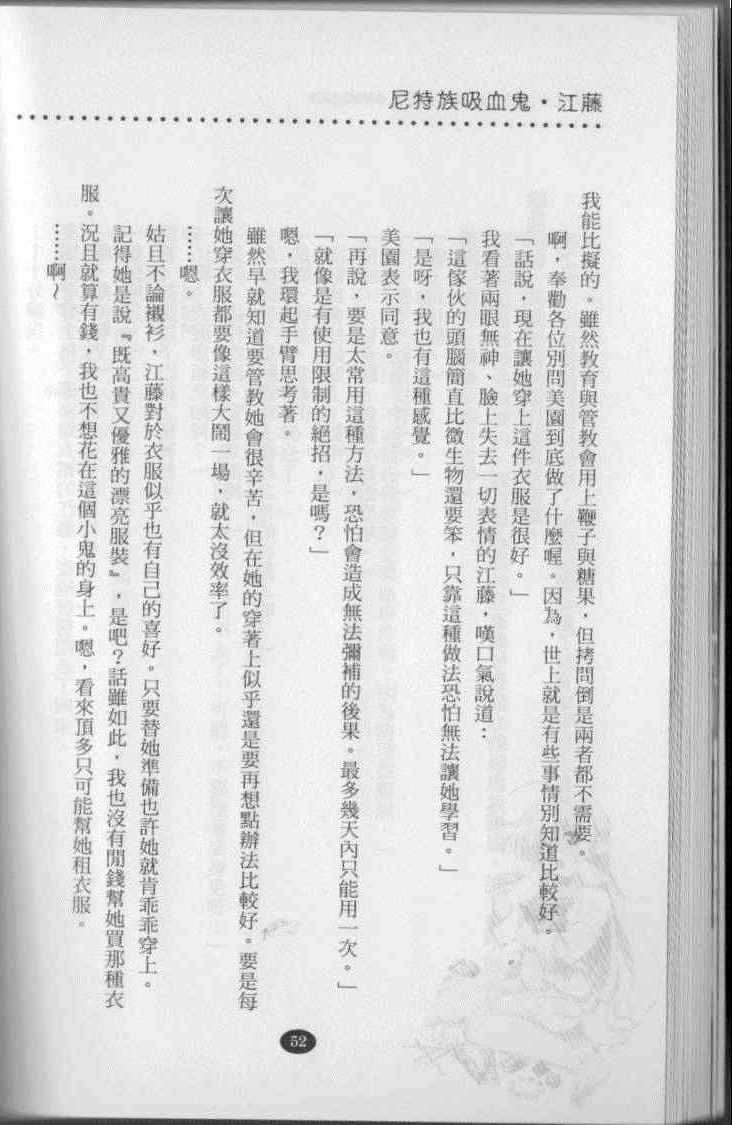 尼特族吸血鬼・江藤
我能比擬的。雖然教育與管教會用上鞭子與糖果，但拷問倒是兩者都不需要。
啊，奉勸各位別問美園到底做了什麼喔。因為，世上就是有些事情別知道比較好。
「話說，現在讓她穿上這件衣服是很好。」
我看著兩眼無神、臉上失去一切表情的江藤，嘆口氣說道：
「這傢伙的頭腦簡直比微生物還要笨，只靠這種做法恐怕無法讓她學習。」
「是呀，我也有這種感覺。」
美園表示同意。
「再說，要是太常用這種方法，恐怕會造成無法彌補的後果。最多幾天內只能用一次。」
「就像是有使用限制的絕招，是嗎？」
嗯，我環起手臂思考著。
雖然早就知道要管教她會很辛苦，但在她的穿著上似乎還是要再想點辦法比較好。要是每
次讓她穿衣服都要像這樣大鬧一場，就太沒效率了。
……嗯。
姑且不論襯衫，江藤對於衣服似乎也有自己的喜好。只要替她準備也許她就肯乖乖穿上。
記得她是說『既高貴又優雅的漂亮服裝』，是吧？話雖如此，我也沒有閒錢幫她買那種衣
服。況且就算有錢，我也不想花在這個小鬼的身上。嗯，看來頂多只可能幫她租衣服。
……啊～
52